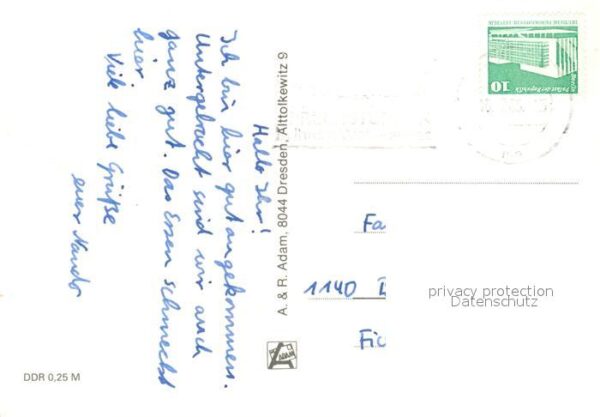 Hallo Ihr!
Ich bin hier gut angekommen.
Untergebracht sind wir auch
ganz gut. Das Essen schmeckt
hier.
Viele liebe Grüße
euer Nando
A. & R. Adam, 8044 Dresden, Alttolkewitz 9
ADAM
DDR 0,25 M
10
Palast der Republik
Berlin
DEUTSCHE DEMOKRATISCHE REPUBLIK
Fa
1140
Fic
privacy protection
Datenschutz